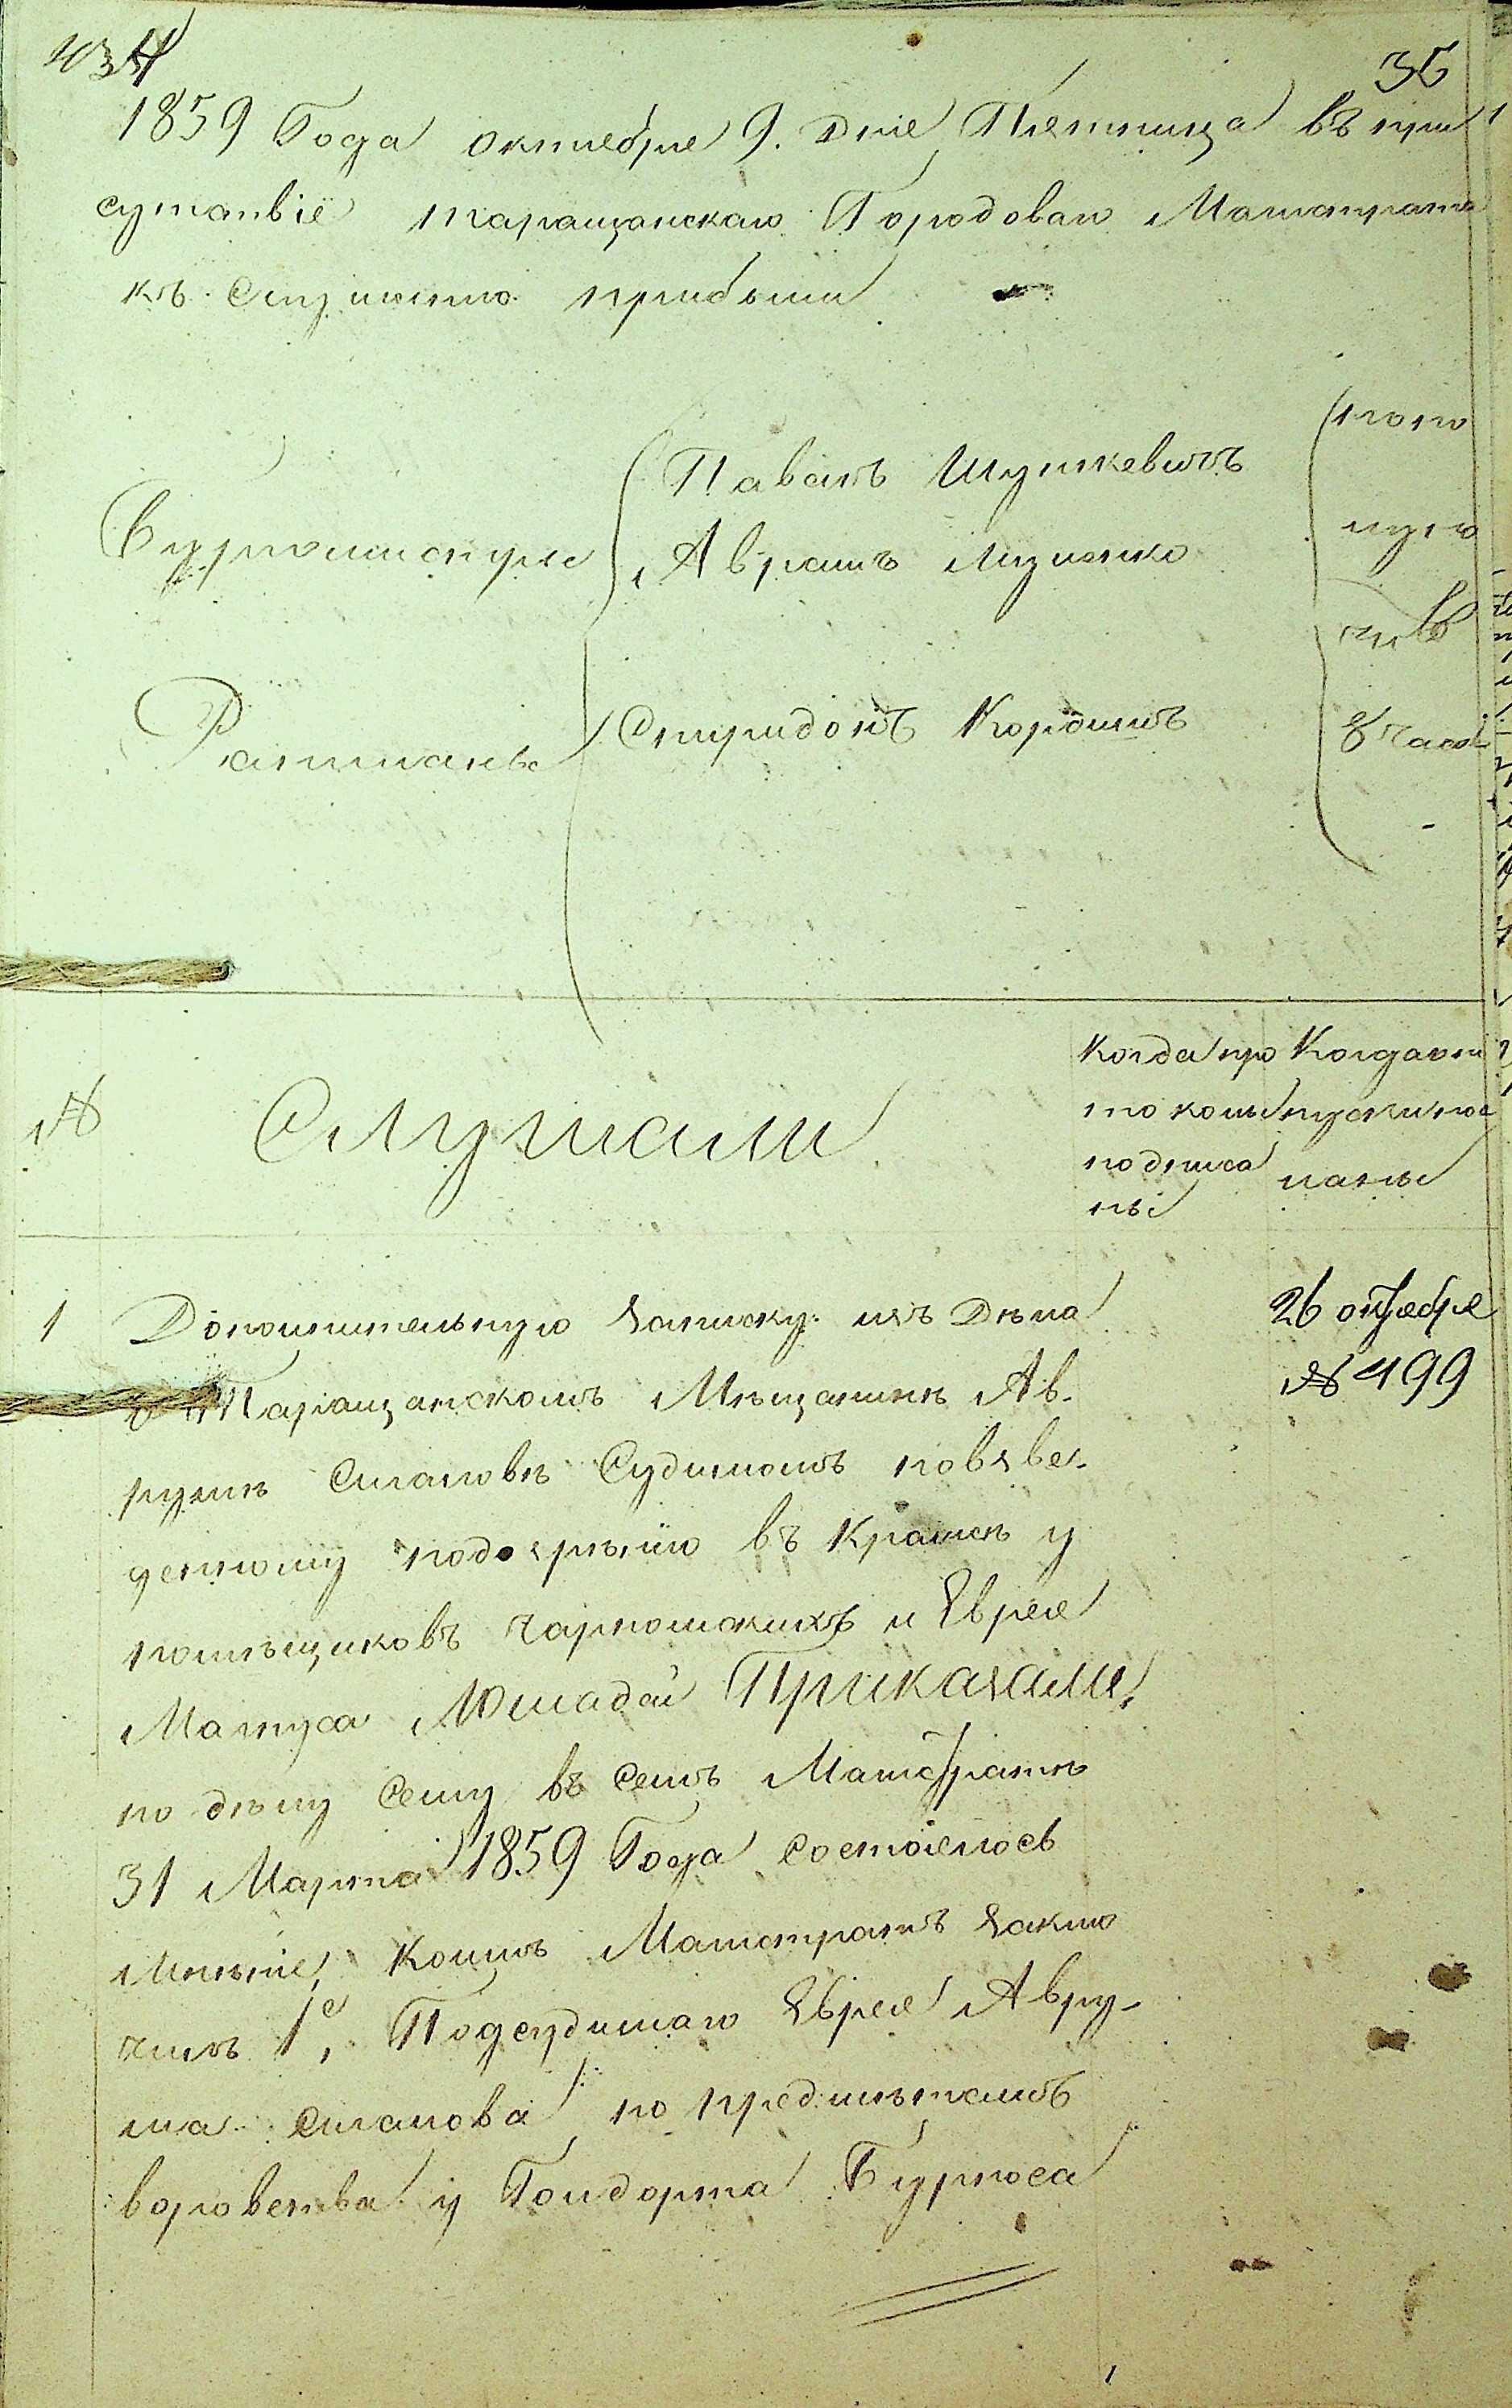 434
35
1859 Года октября 9. дня Пятница въ при
сутствіе таращанскаго Городоваго Магистрата
къ слушанію прибыли
Бургомистры
Павелъ Шушкевичъ
Аврамъ Лизенко
Ратманъ
Спиридонъ Кордышъ
по по
лу но
чи въ
8 часа
№
Слушали
Когда про
токолы
подписа
ны
Когда ис
пускнос
ланы
1
Дополнительную записку изъ Дѣла
о Таращанскомъ Мѣщанинѣ Ав-
румѣ Слановѣ Судимомъ по взве-
денному подозрѣнію въ Кражѣ у
помѣщиковъ Чарномскихъ и Еврея
Матуса Лошадей Приказали,
по дѣлу сему въ семъ Магистратѣ
31 Марта 1859 Года состоялось
мнѣніе, коимъ Магистратъ заклю
чилъ 1е, Подсудимаго Еврея Авру-
ма Сланова по предмѣтамъ
воровства у Гондорта Бурноса
26 октября
№ 499